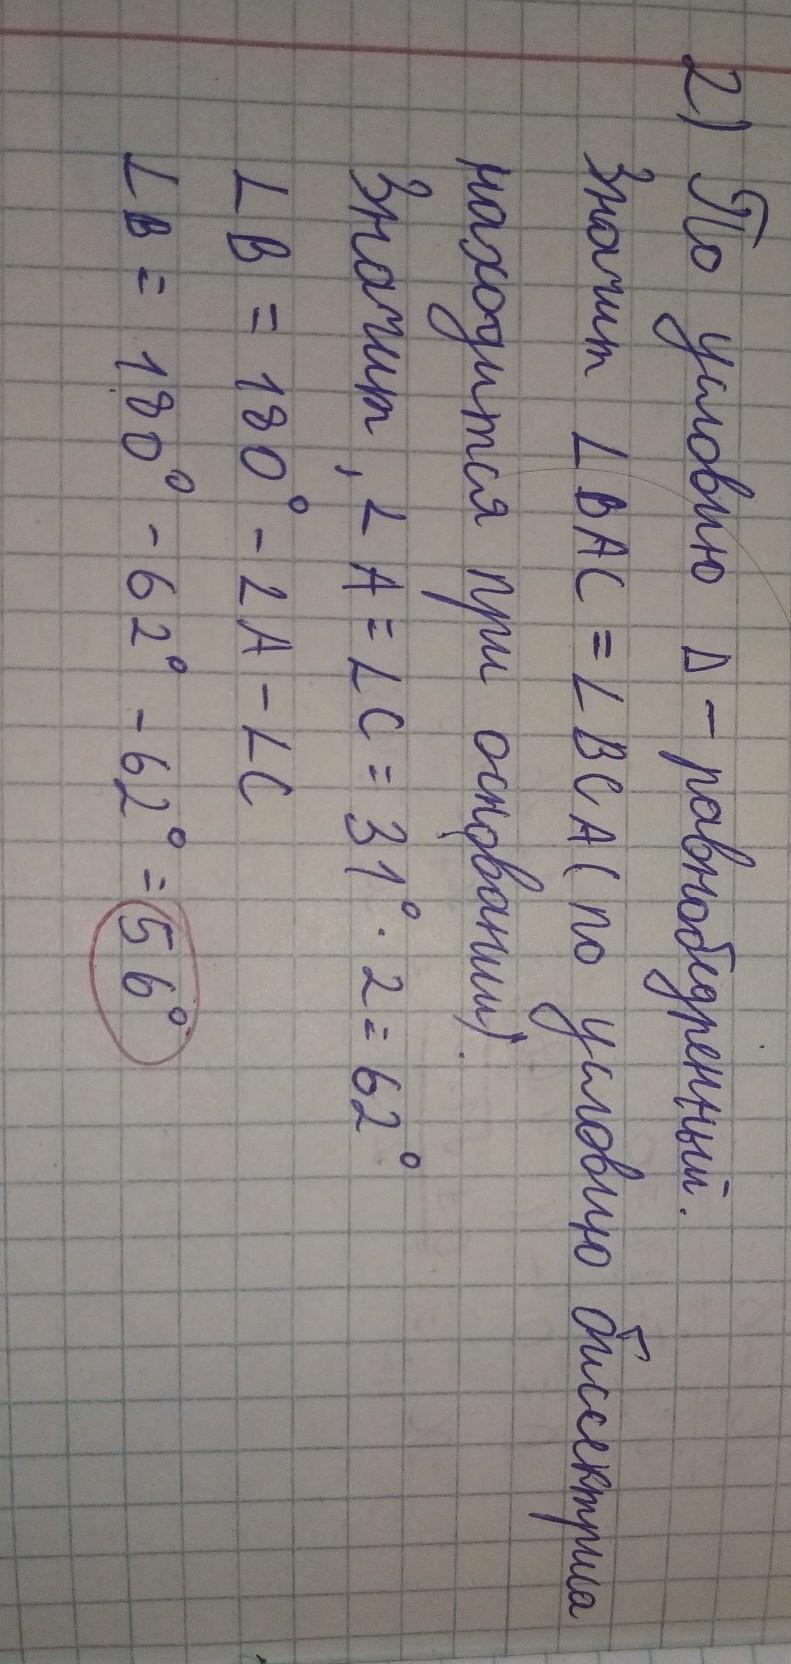 2) По условию Δ - равнобедренный.
Значит ∠BAC = ∠BCA (по условию биссектриса
находится при основании).
Значит, ∠A = ∠C = 31° · 2 = 62°
∠B = 180° - ∠A - ∠C
∠B = 180° - 62° - 62° = 56°